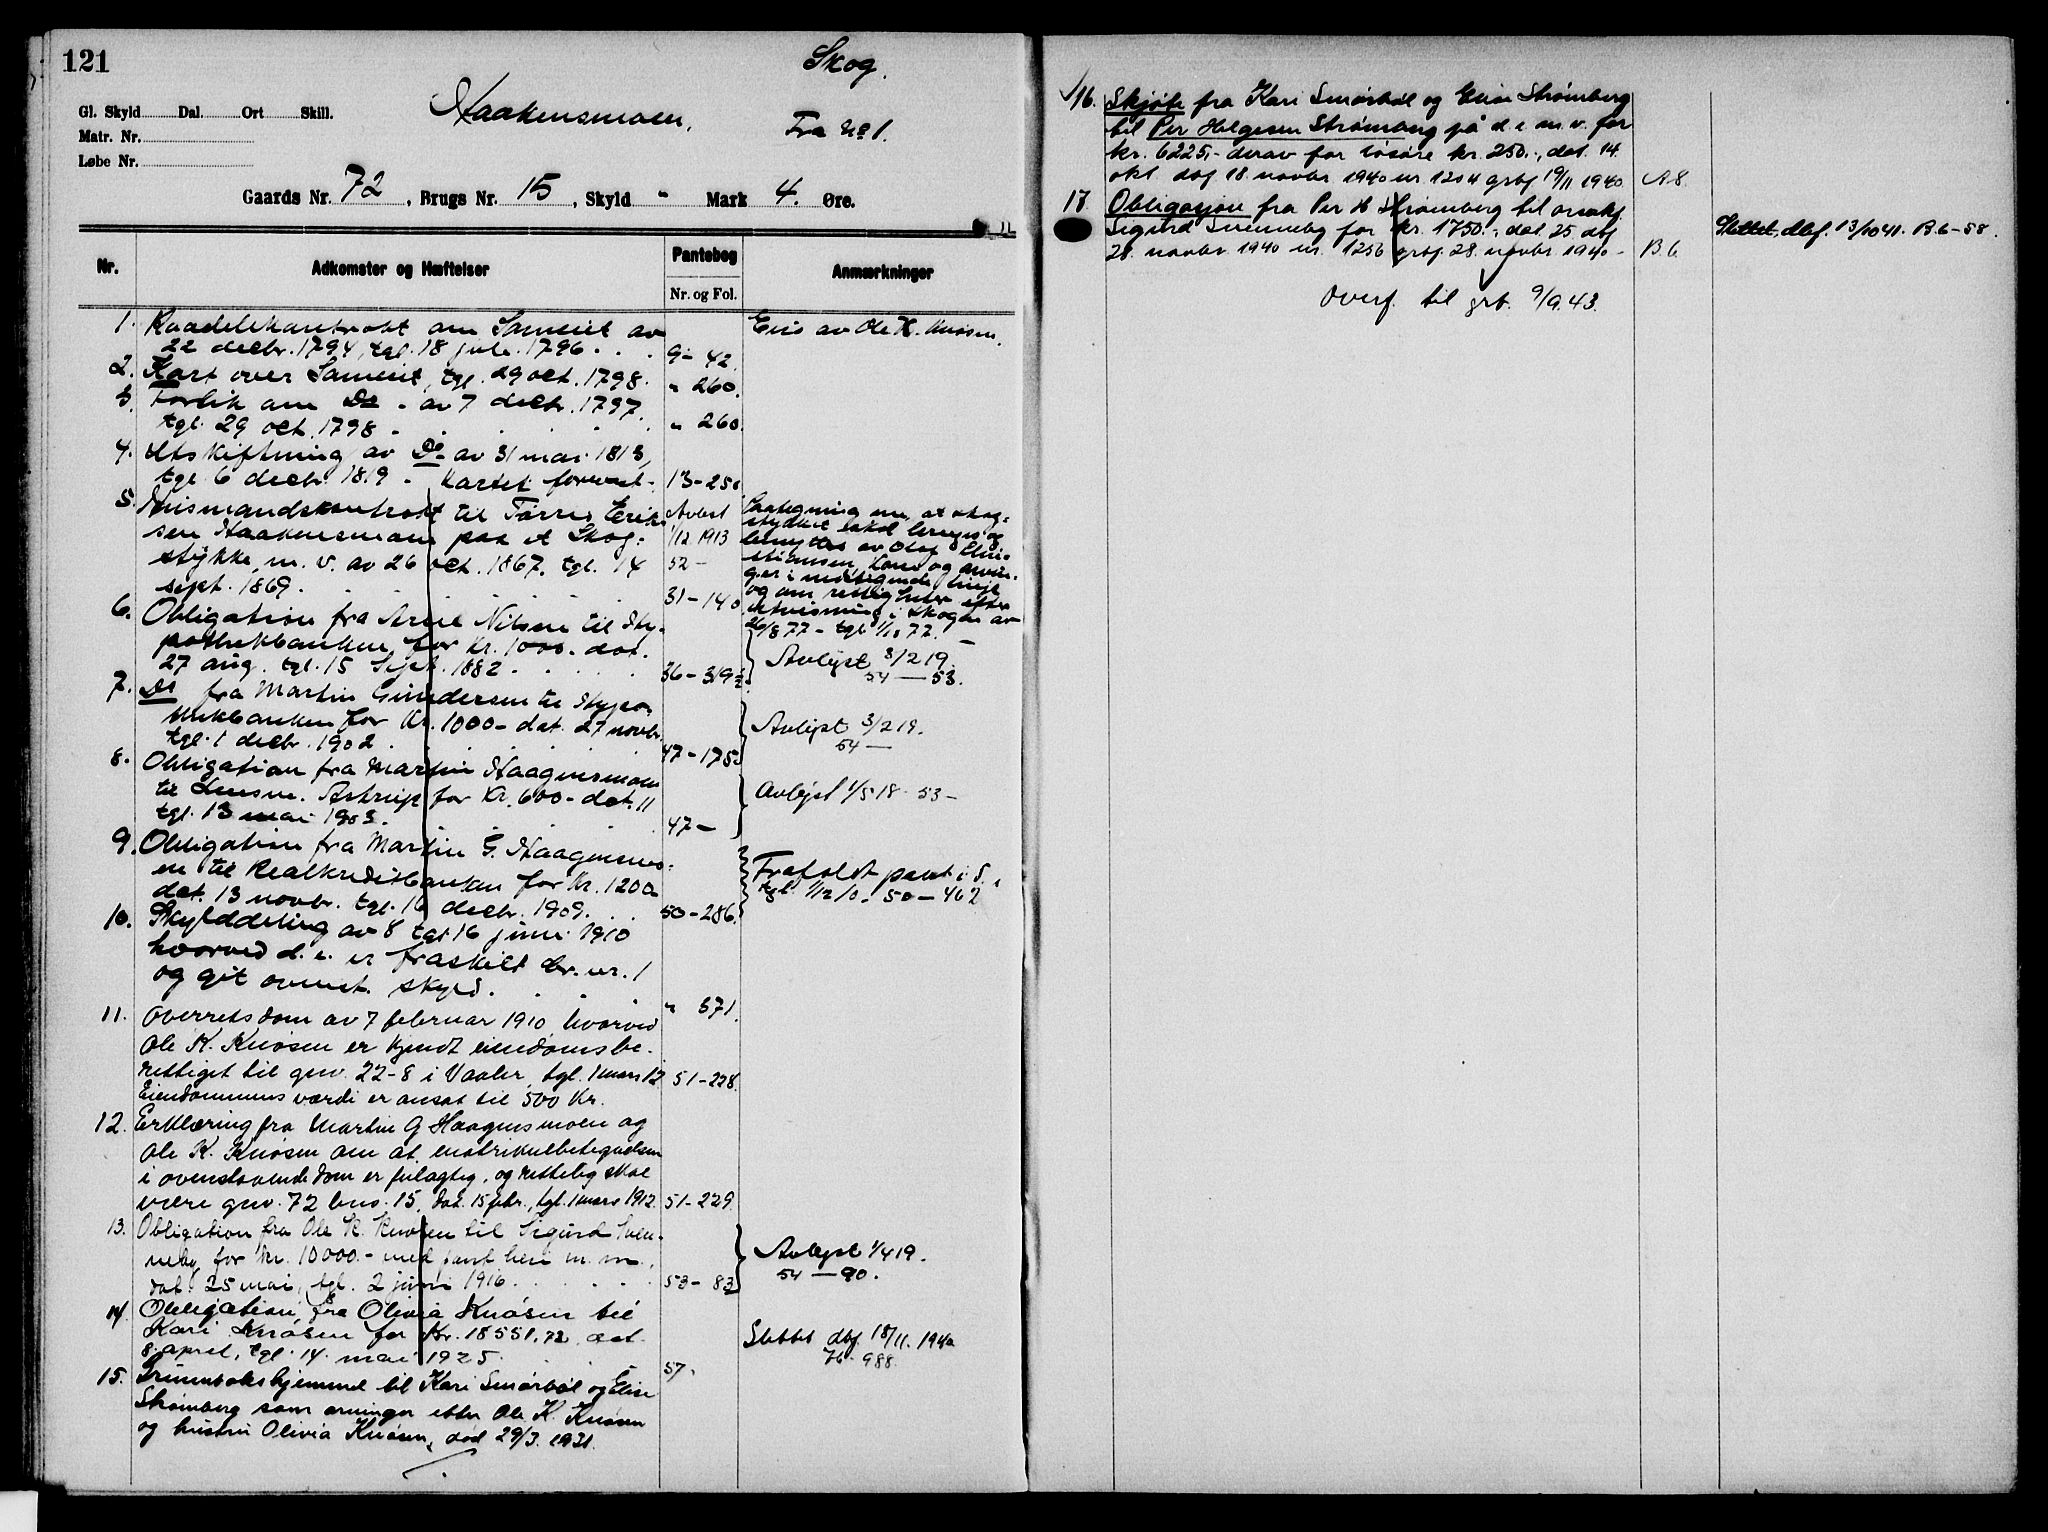 121
Skog.
Gl. Skyld Dal. Ort Skill.
Haakensmoen.
Fra No 1.
Matr. Nr.
Løbe Nr.
Gaards Nr. 72, Brugs Nr. 15, Skyld " Mark 4. Øre.
Nr. Adkomster og Hæftelser Pantebog Anmærkninger
Nr. og Fol.
1. Raadelekontrakt om Sameiet av Eies av Ole K. Knøsen.
22 decbr. 1794, tgl. 18 1796. 9 - 42.
2. Kart over Sameiet, tgl. 29 oct. 1798. " 260.
3. Forlik om Do - av 7 decbr. 1797.
tgl. 29 oct. 1798 - " 260.
4. Utskiftning av Do av 31 mai 1813,
tgl. 6 decbr. 1819 - Kartet forevist. 13 - 25
5. Husmandskontrakt til Tørris Erik- Avlest
sen Haakensmoen paa et Skog- 1/12 1913
stykke m. v. av 26 oct. 1867. tgl. 14 52 -
sept. 1869. 31 - 140
Paategning om, at skog-
stykket skal
benyttes av Olaf Chri-
stiansen, Kone og
i nedstigende linje
og om rettigheter efter
utvisning i skogen av
26/8 77 - tgl. 1/10 77.
6. Obligation fra Arne Nilsen til Hy-
pothekbanken for Kr. 1000 - dat.
27 aug. tgl. 15 Sept. 1882. 36 - 319
Avlyst 3/2 19.
54 — 53.
7. Do fra Martin Gundersen til Hypo-
thekbanken for Kr. 1000 - dat. 27 novbr.
tgl. 1 decbr. 1902. 47 - 175
Avlyst 3/2 19.
54 —
8. Obligation fra Martin Haagensmoen
til Lensm. Astrup for Kr. 600 - dat. 11
tgl. 13 mai 1903. 47 -
Avlyst 1/5 18. 53 -
9. Obligation fra Martin G. Haagensmo-
en til Realkreditbanken for Kr. 1200
dat. 13 novbr. tgl. 16 decbr. 1909. 50 - 286.
Frafaldt pant i d. e.
tgl. 1/12 10. 50 - 462
10. Skylddeling av 8 tgl. 16 juni 1910
hvorved d. e. er fraskilt br. nr. 1
og git ovennt. skyld. " 371.
11. Overretsdom av 7 februar 1910 hvorved
Ole K. Knøsen er kjendt eiendomsbe-
rettiget til gnr. 22-8 i Vaaler, tgl. 1 mars 12 51 - 228.
Eiendommens værdi er ansat til 500 Kr.
12. Erklæring fra Martin G Haagensmoen og
Ole K. Knøsen om at matrikulbetegnelsen
i ovenstaaende dom er feilagtig, og rettelig skal
være gnr. 72 bno. 15, dat. 15 febr., tgl. 1 mars 1912. 51 - 229
13. Obligation fra Ole K. Knøsen til Sigurd Sven-
neby for kr. 10000.- med pant heri m. m.,
dat. 25 mai, tgl. 2 juni 1916. 53 - 83
Avlyst 1/4 19.
54 — 90.
14. Obligation fra Olivia Knøsen til
Kari Knøsen for Kr. 18551.72 dat.
8. april, tgl. 14. mai 1925. 57.
Slettet dbf 18/11. 1940
76 - 988.
15. Grunnbokshjemmel til Kari Smørbøl og Elise
Strømberg som arvinger etter Ole K. Knøsen
og hustru Olivia Knøsen, død 29/3. 1931.
16. Skjøte fra Kari Smørbøl og Elise Strømberg
til Per Helgesen Strømberg på d. e. m. v. for
kr. 6225,- derav for løsøre kr. 250.-, dat. 14.
okt dbf 18 novbr 1940 nr. 1204 grbf 19/11 1940. A 8.
17 Obligasjon fra Per H Strømberg til o.r.sakf.
Sigurd Svenneby for kr. 1750.-, dat. 25 dbf
28. novbr 1940 nr. 1256 grbf. 28. novbr. 1940 - B 6.
Slettet, dbf. 13/10 41. B. 6 - 58.
Overf. til grb. 9/9.43.